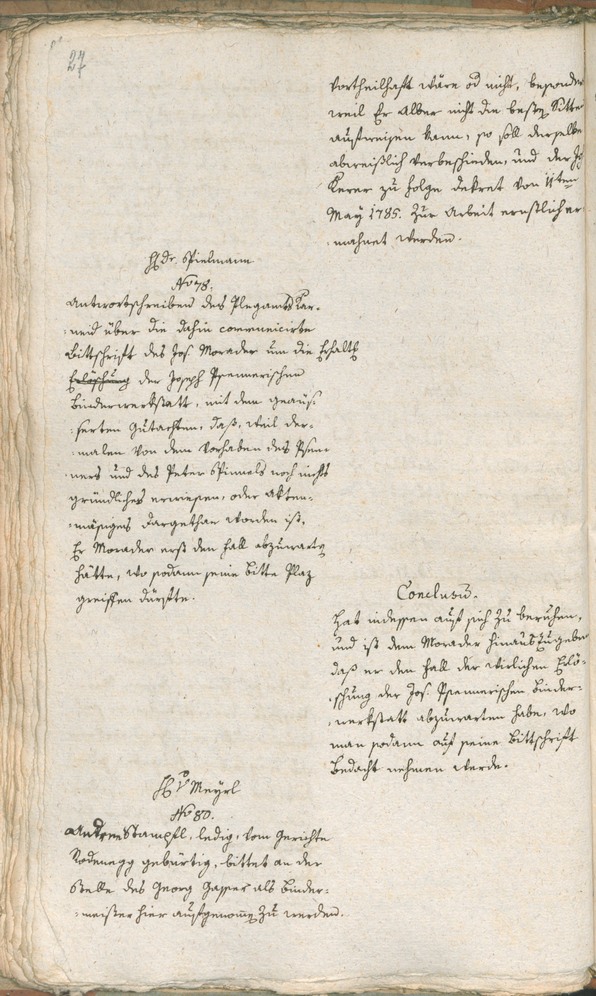 27
vortheilhaft wäre od nicht, besonder
weil Er Alber nicht die besten Sitten
aufweisen kann, so soll derselbe
abweißlich verbeschieden, und der
Kerer zu folge Dekret von 11ten
May 1785. zur Arbeit ernstlich er-
:mahnet werden.
H dr. Spielmann
No 78.
Antwortschreiben des Plegamts Kar-
:neid über die dahin communicirte
Bittschrift des Jos Morader um die Erhalte
Erlöschung der Joseph Psennerischen
Binderwerkstatt, mit dem geäus-
:serten Gutachten, daß, weil der-
:malen von dem Vorhaben des Psen-
:ners und des Peter Spinnels noch nichts
gründliches erwiesen, oder Akten-
:mäsiges dargethan worden ist,
Er Morader erst den fall abzuwarten
hätte, wo sodann seine bitte Plaz
greiffen dürfte.
Conclusū.
Hat indessen auf sich zu beruhen,
und ist dem Morader hinauszugeben
daß er den fall der wirklichen Erlö-
:schung der Jos. Psennerischen Binder-
:werkstatt abzuwarten habe, wo
man sodann auf seine Bittschrift
bedacht nehmen werde.
H Meyrl
No 80.
Andree Stampfl, ledig, vom Gerichte
Rodenegg gebürtig, bittet an der
Stelle des Georg Gasser als Binder-
:meister hier aufgenomen zu werden.